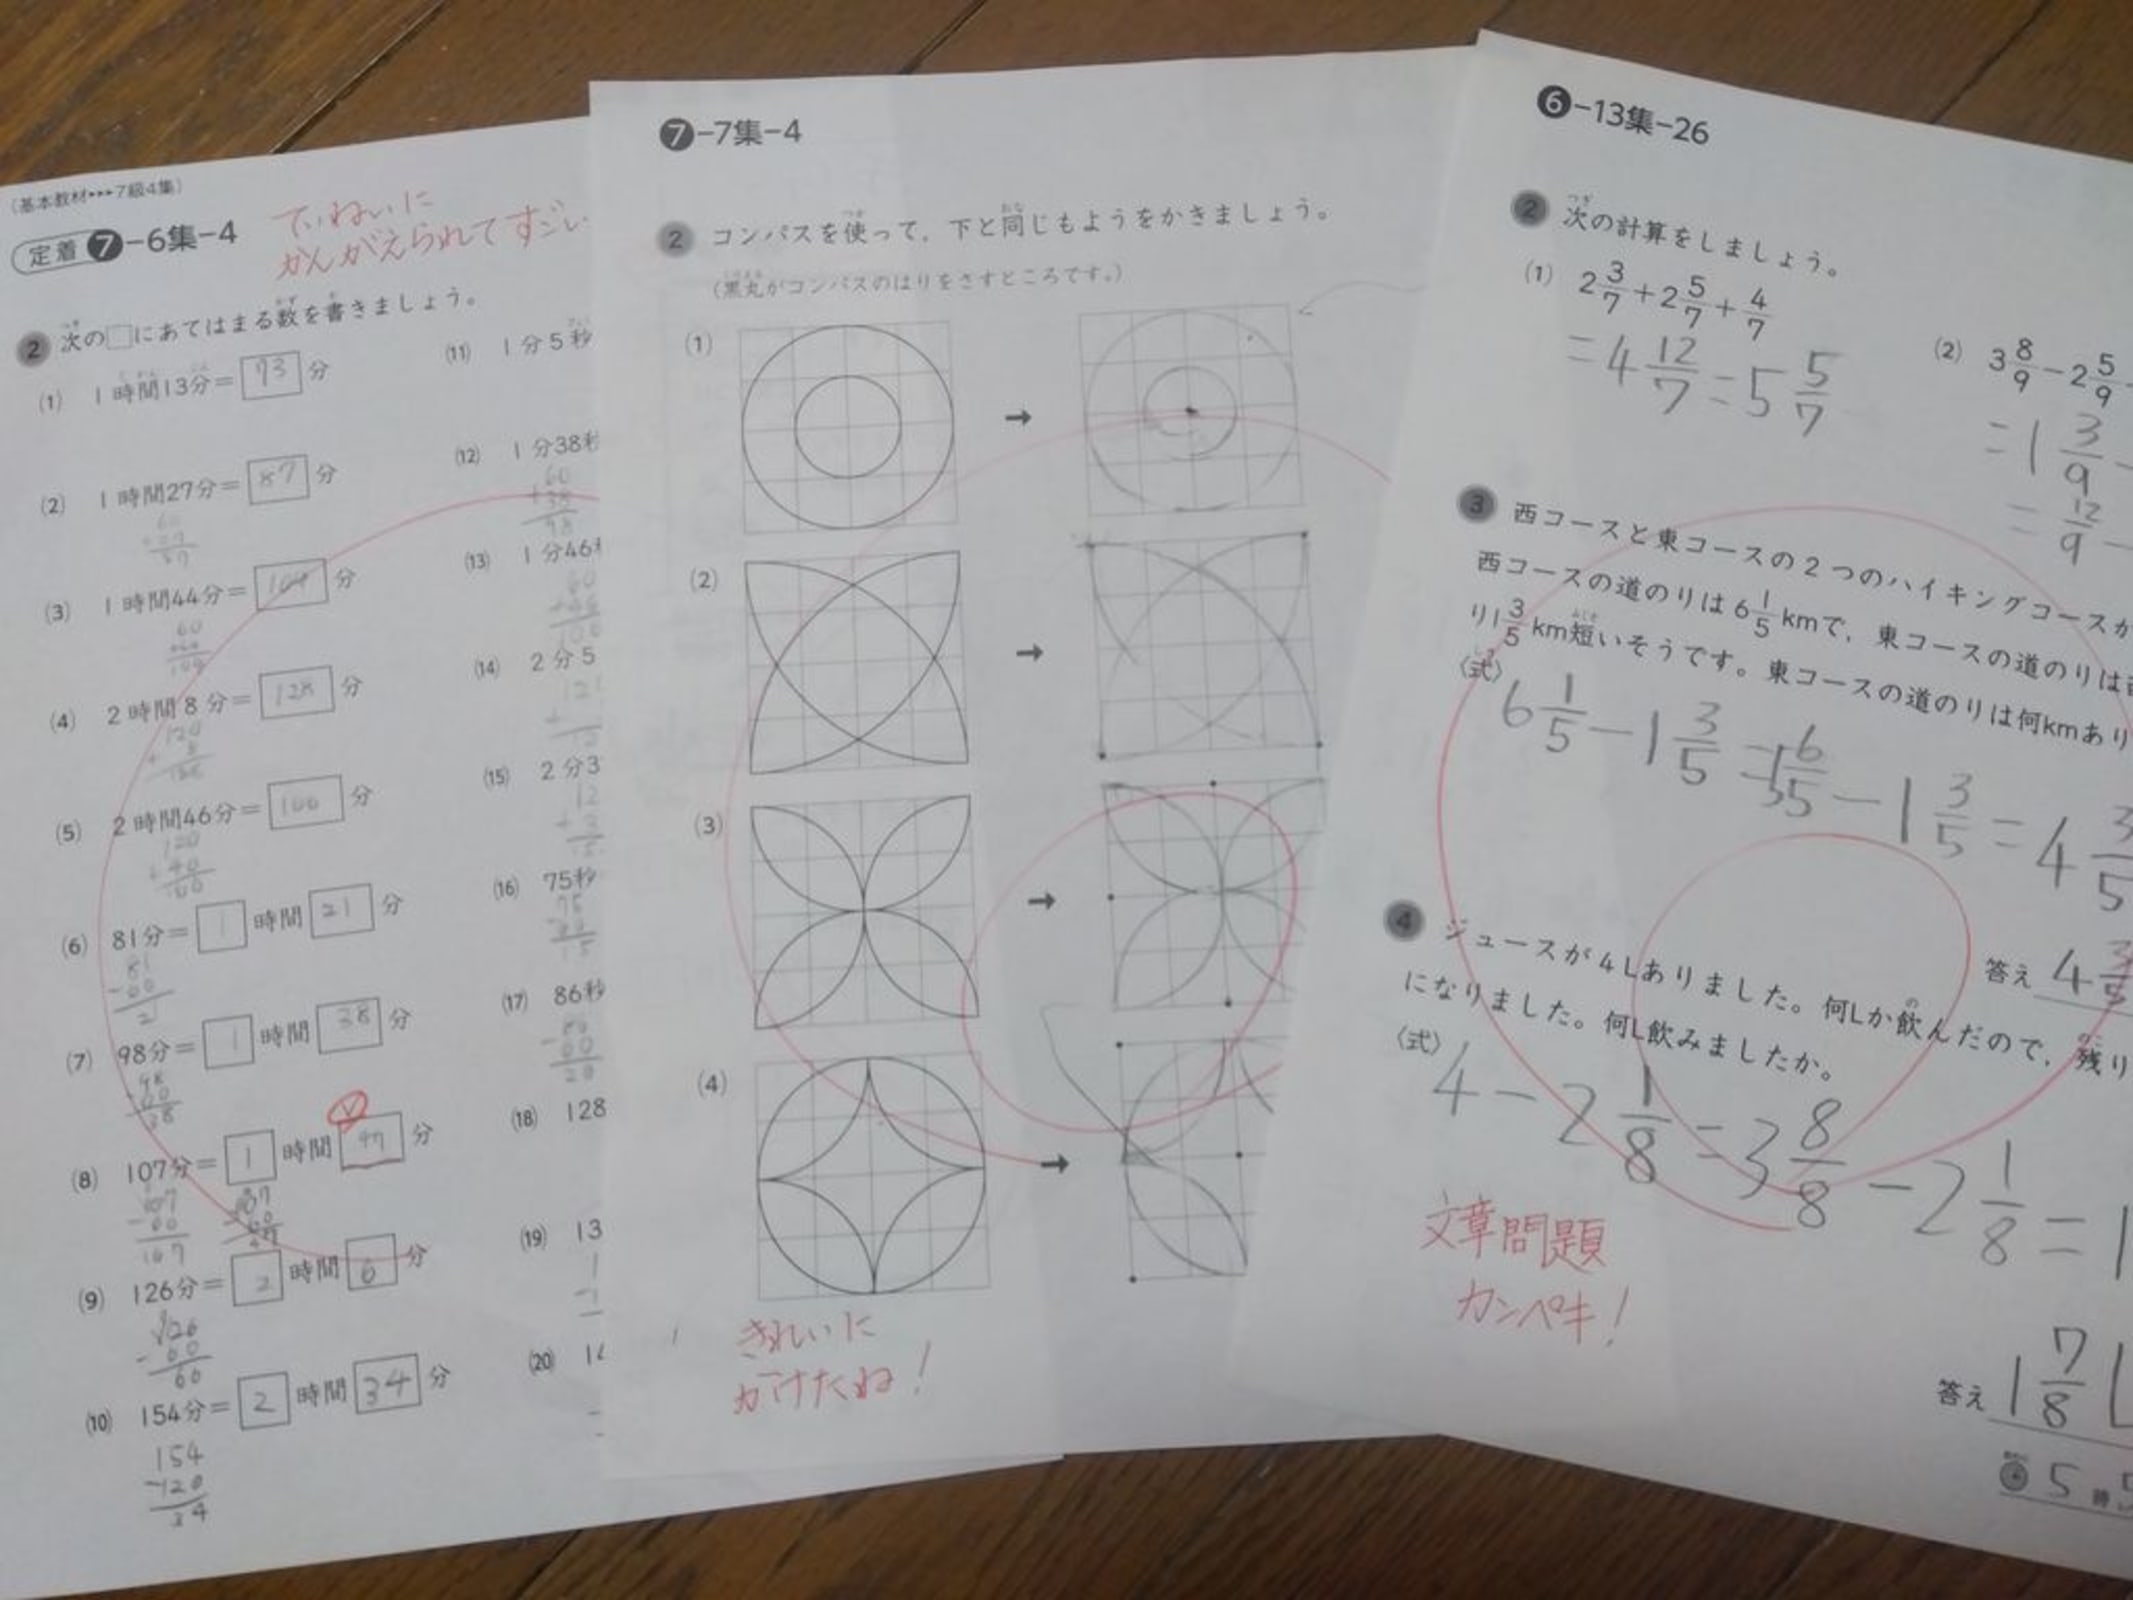 (基本教材▸▸▸7級4集)
定着 7-6集-4
ていねいに
かんがえられてすごい
2 次の□にあてはまる数を書きましょう。
(1) 1時間13分= 73 分
(2) 1時間27分= 87 分
60
+27
87
(3) 1時間44分= 104 分
60
+44
104
(4) 2時間8分= 128 分
120
+ 8
128
(5) 2時間46分= 分
120
(6) 81分= 1 時間 21 分
81
-60
(7) 98分= 1 時間 38 分
98
-60
38
(8) 107分= 1 時間 47 分
107
-60
(9) 126分= 2 時間 6 分
126
-60
66
(10) 154分= 2 時間 34 分
154
-120
34
(11) 1分5秒
(12) 1分38秒
60
+38
98
(13) 1分46
60
(14) 2分5
(15) 2分3
12
(16) 75秒
75
60
15
(17) 86秒
86
-60
(18) 128
(19) 13
(20)
7-7集-4
2 コンパスを使って,下と同じもようをかきましょう。
(黒丸がコンパスのはりをさすところです。)
(1) →
(2) →
(3) →
(4) →
きれいに
かけたね!
6-13集-26
2 次の計算をしましょう。
(1) 2 3/7+2 5/7+4/7
=4 12/7=5 5/7
(2) 3 8/9-2 5/9-
=1 3/9-
=12/9-
3 西コースと東コースの2つのハイキングコースが
西コースの道のりは6 1/5 kmで,東コースの道のりは
り1 3/5 km短いそうです。東コースの道のりは何kmあり
〈式〉 6 1/5-1 3/5=5 6/5-1 3/5=4 3/5
答え 4 3/5
4 ジュースが4Lありました。何Lか飲んだので,残り
になりました。何L飲みましたか。
〈式〉 4-2 1/8=3 8/8-2 1/8=1
文章問題
カンペキ!
答え 1 7/8 L
5 時